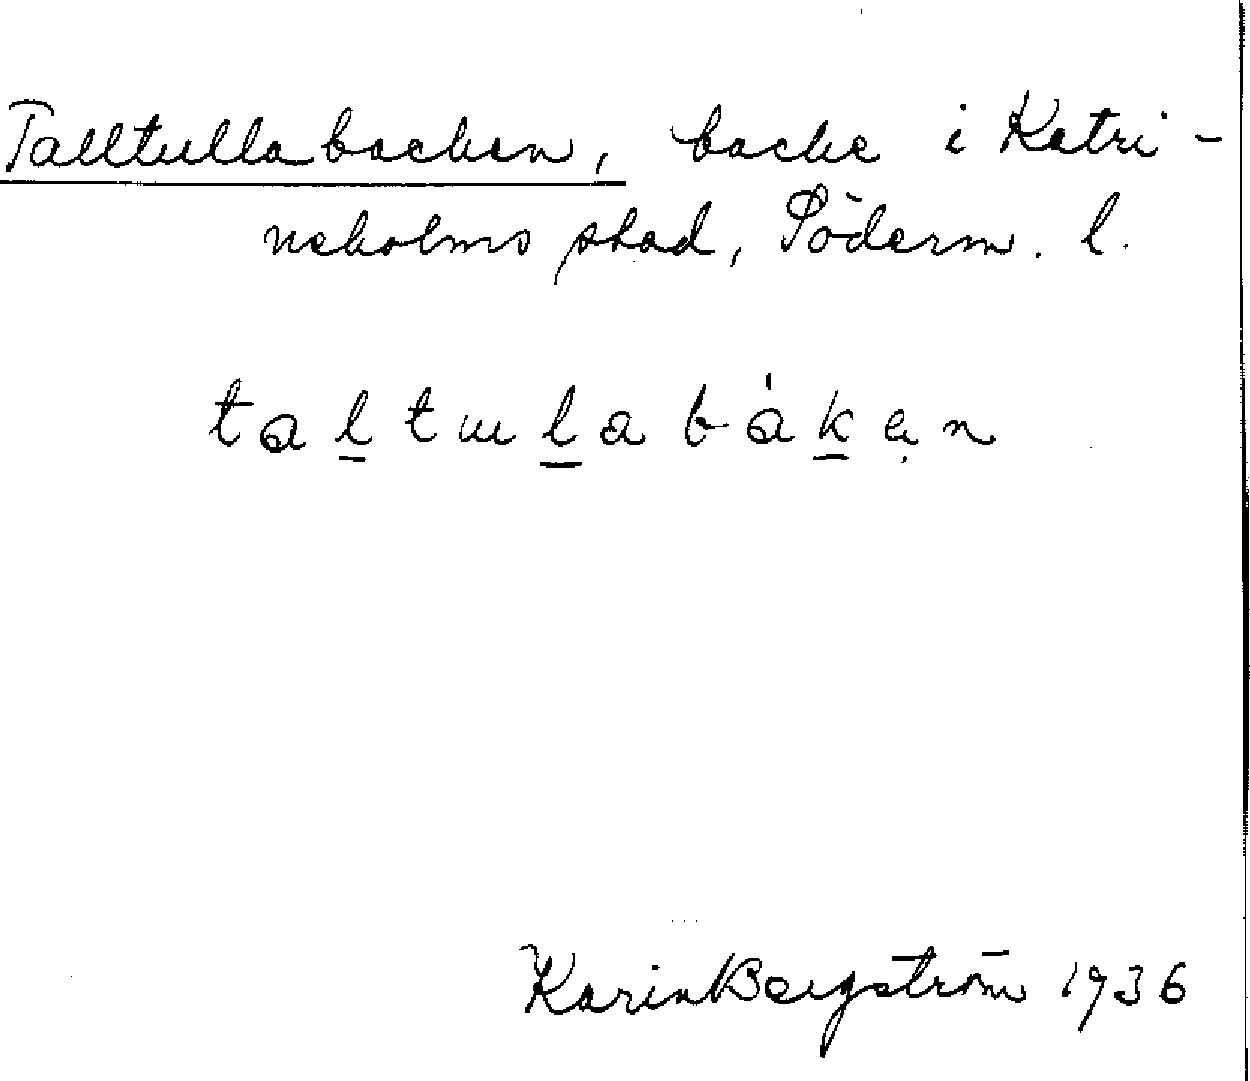 Talltullabacken, backe i Katri-
neholms stad, Söderm. l.
ta̲l̲tɯl̲abák̲ạn
Karin Bergström 1936